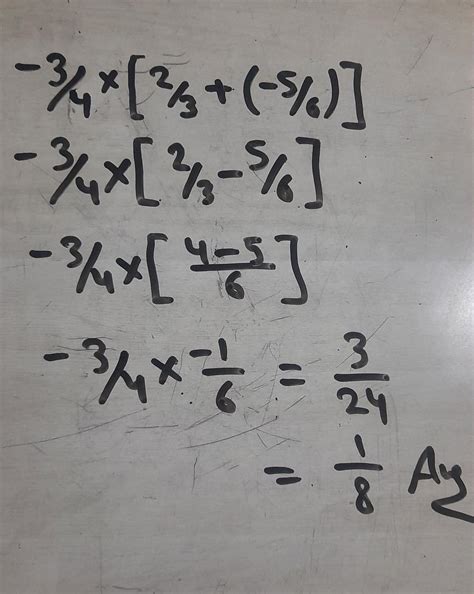 -3/4 × [2/3 + (-5/6)]
-3/4 × [2/3 - 5/6]
-3/4 × [4-5/6]
-3/4 × -1/6 = 3/24
= 1/8 Ans